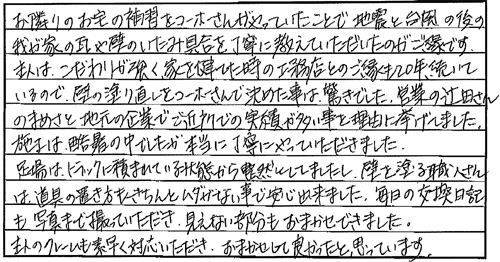 お隣りのお宅の補習をコーホーさんがやっていたことで地震と台風の後の
我が家の瓦や壁のいたみ具合を丁寧に教えていただいたのがご縁です。
主人は、こだわりが強く家を建てた時の工務店とのご縁も20年続いて
いるので、壁の塗り直しをコーホーさんで決めた事は驚きでした。営業の辻田さん
のまじめさと地元の企業でご近所での実績が多い事を理由に挙げました。
施工は酷暑の中でしたが本当に丁寧にやっていただきました。
足場は、トラックに積まれている状態から整然としてましたし、壁を塗る職人さん
は、道具の置き方もきちんとムダがない事で安心出来ました。毎日の交換日記
も写真まで撮っていただき、見えない部分もおまかせできました。
主人のクレームも素早く対応いただき、おまかせして良かったと思っています。